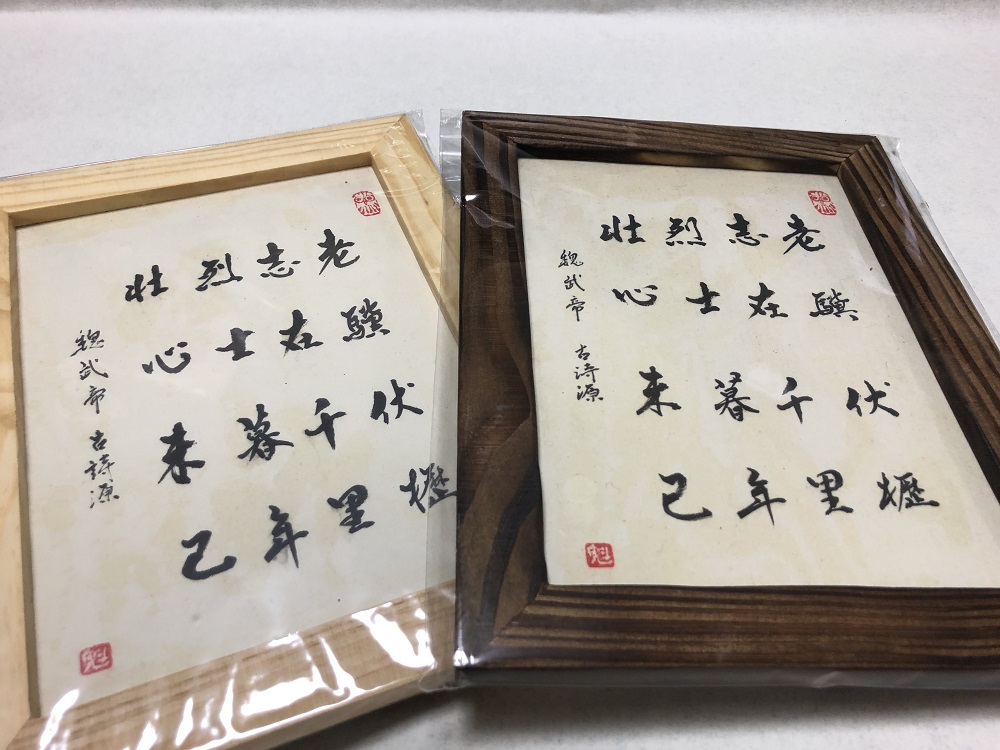 老驥伏櫪
志在千里
烈士暮年
壮心未已
魏武帝 古詩源
魁
老驥伏櫪
志在千里
烈士暮年
壮心未已
魏武帝 古詩源
魁